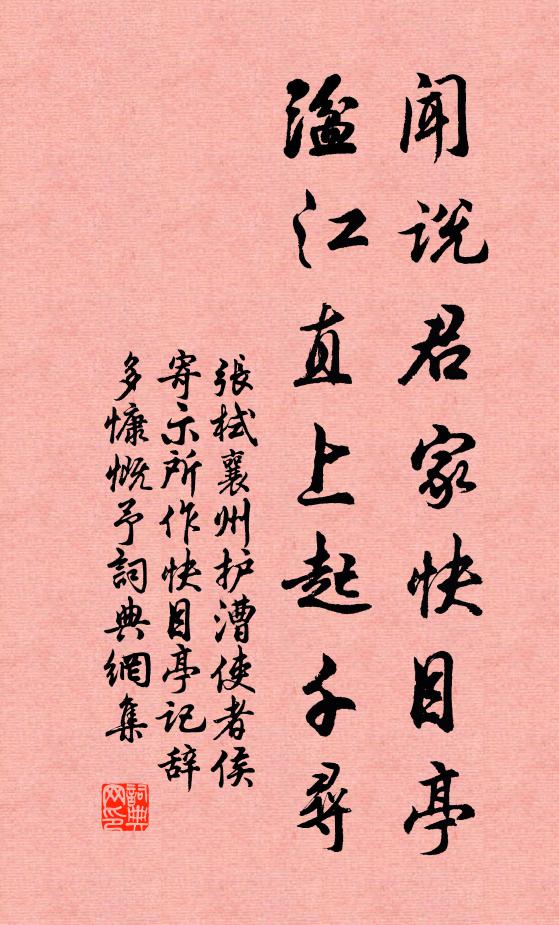 闻说君家快目亭
湓江直上起千寻
張栻襄州护漕使者侯
寄示所作快目亭记辞
多慷慨予詞典網集
詞典
网印